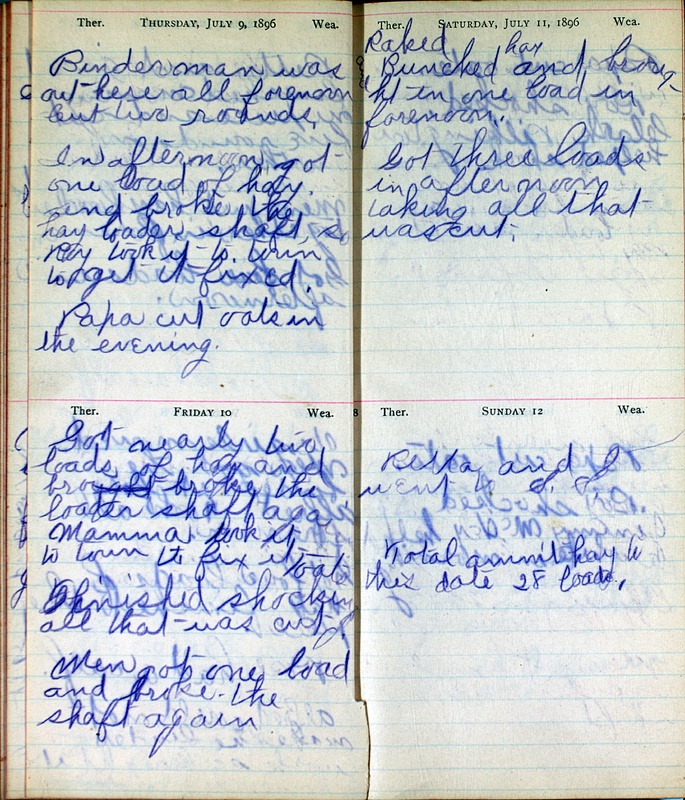 Ther. THURSDAY, JULY 9, 1896 Wea.
Binder man was
out here all forenoon
cut two rounds.
In afternoon got
one load of hay.
and broke the
hay loader shaft, so
Ray took it to town
to get it fixed.
Papa cut oats in
the evening.
Ther. FRIDAY 10 Wea.
Got nearly two
loads of hay and
broke the
loader shaft aga
Mamma took it
to town to fix it.
oats
Finished shocking
all that was cut
Men got one load
and broke the
shaft again
Ther. SATURDAY, JULY 11, 1896 Wea.
Raked hay
Bunched and brou-
ht in one load in
forenoon.
Got three loads
in afternoon
taking all that
was cut.
8 Ther. SUNDAY 12 Wea.
and I
went to S. S.
Total ammt hay to
this date 28 loads.